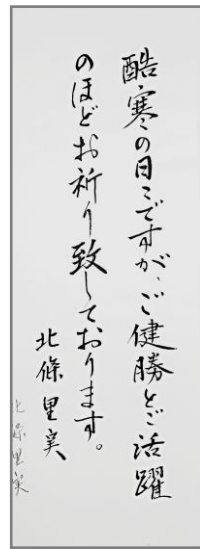 酷寒の日々ですが、ご健勝とご活躍
のほどお祈り致しております。
北條里実
北條里実